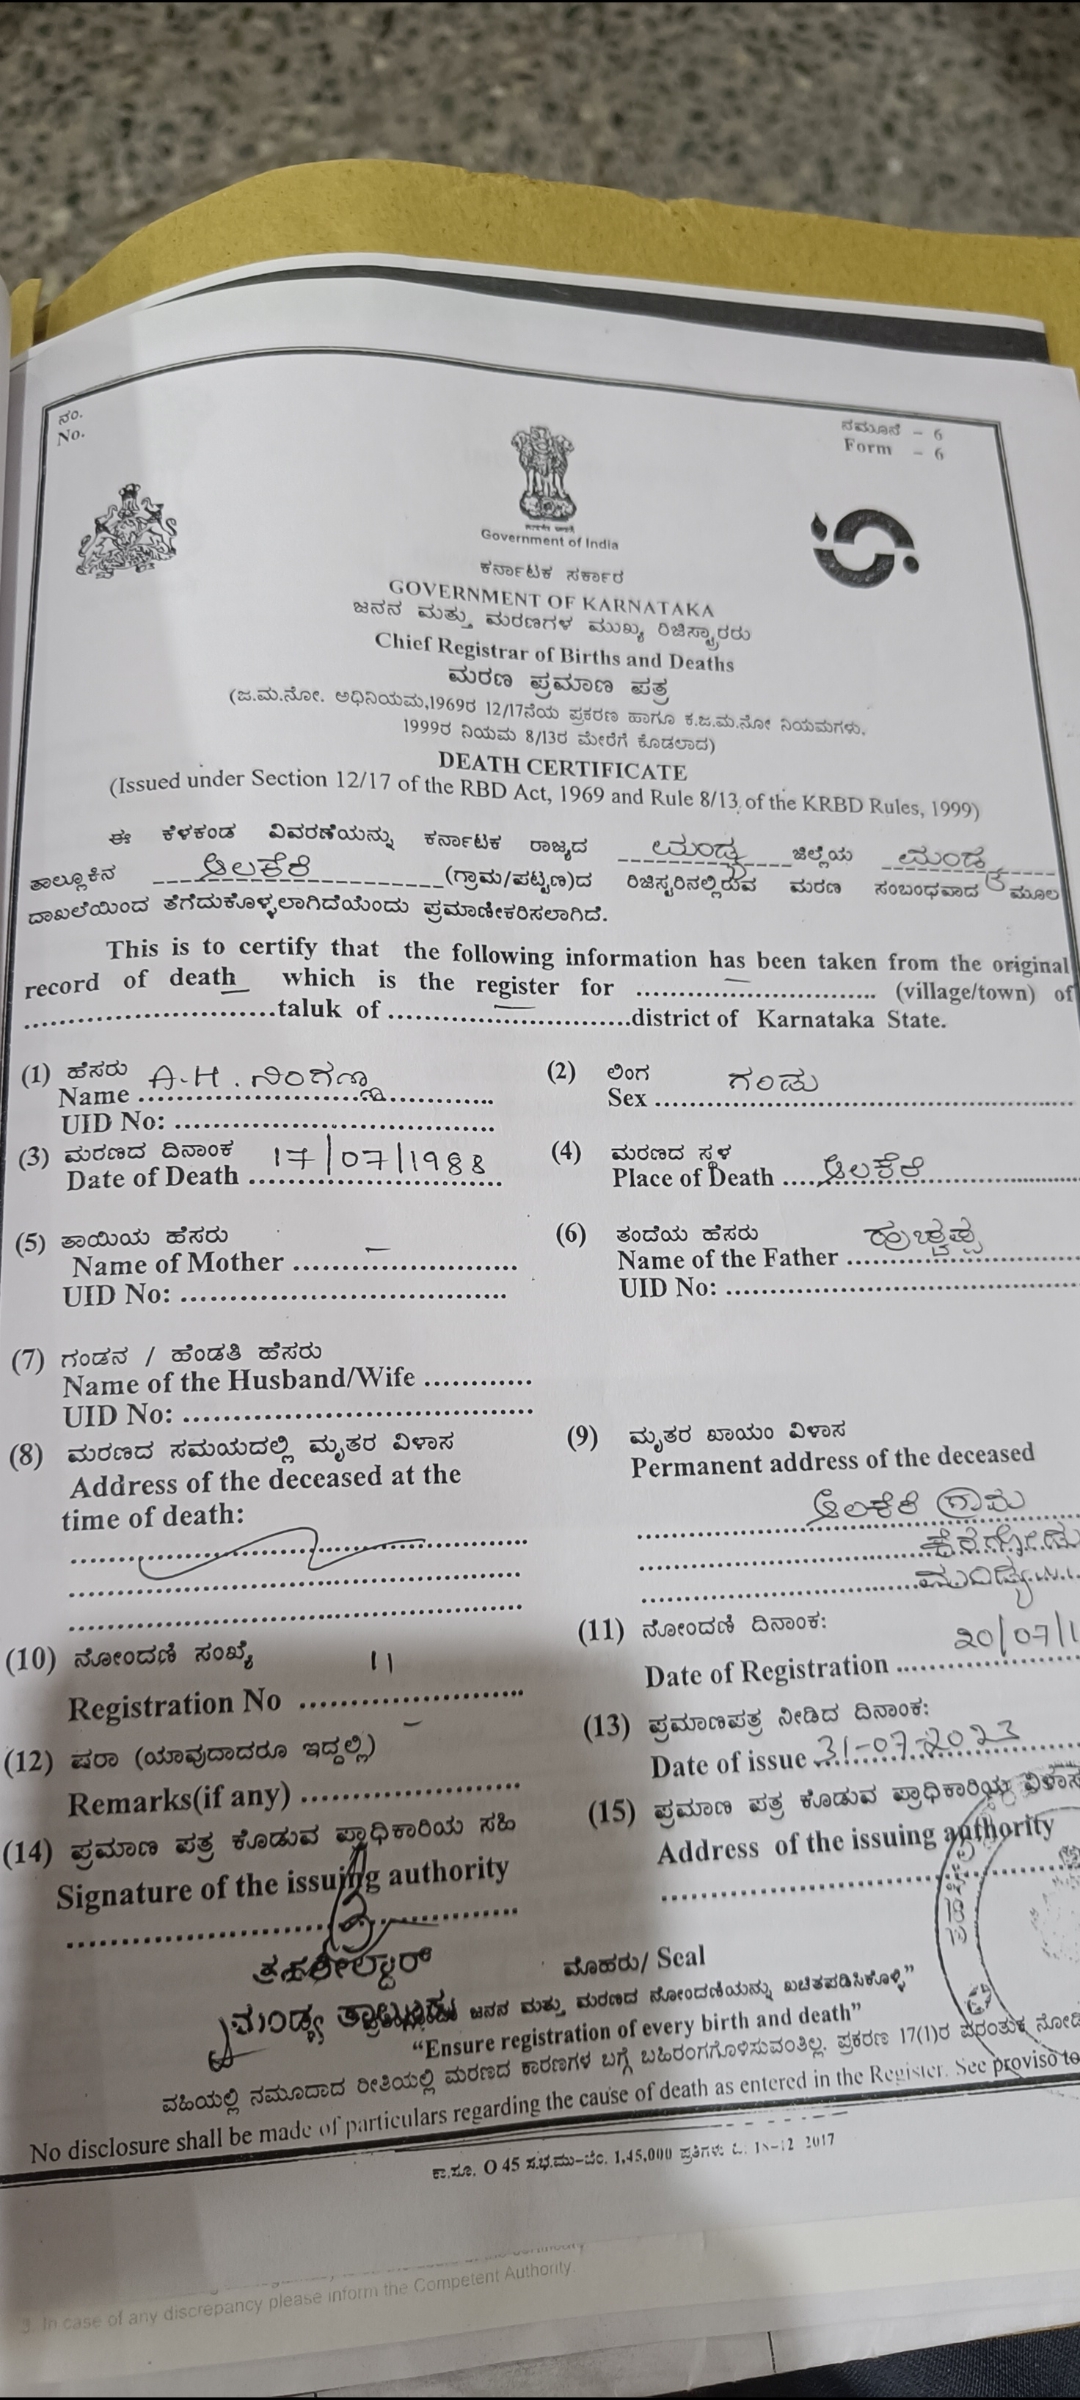 ನಂ.
No.
ನಮೂನೆ - 6
Form - 6
Government of India
ಕರ್ನಾಟಕ ಸರ್ಕಾರ
GOVERNMENT OF KARNATAKA
ಜನನ ಮತ್ತು ಮರಣಗಳ ಮುಖ್ಯ ರಿಜಿಸ್ಟ್ರಾರರು
Chief Registrar of Births and Deaths
ಮರಣ ಪ್ರಮಾಣ ಪತ್ರ
(ಜ.ಮ.ನೋ. ಅಧಿನಿಯಮ,1969ರ 12/17ನೆಯ ಪ್ರಕರಣ ಹಾಗೂ ಕ.ಜ.ಮ.ನೋ ನಿಯಮಗಳು,
1999ರ ನಿಯಮ 8/13ರ ಮೇರೆಗೆ ಕೊಡಲಾದ)
DEATH CERTIFICATE
(Issued under Section 12/17 of the RBD Act, 1969 and Rule 8/13 of the KRBD Rules, 1999)
ಈ ಕೆಳಕಂಡ ವಿವರಣೆಯನ್ನು ಕರ್ನಾಟಕ ರಾಜ್ಯದ ಮಂಡ್ಯ ಜಿಲ್ಲೆಯ ಮಂಡ್ಯ
ತಾಲ್ಲೂಕಿನ ಆಲಕೆರೆ (ಗ್ರಾಮ/ಪಟ್ಟಣ)ದ ರಿಜಿಸ್ಟರಿನಲ್ಲಿರುವ ಮರಣ ಸಂಬಂಧವಾದ ಮೂಲ
ದಾಖಲೆಯಿಂದ ತೆಗೆದುಕೊಳ್ಳಲಾಗಿದೆಯೆಂದು ಪ್ರಮಾಣೀಕರಿಸಲಾಗಿದೆ.
This is to certify that the following information has been taken from the original
record of death which is the register for .............................. (village/town) of
..............................taluk of ..............................district of Karnataka State.
(1) ಹೆಸರು A.H. ನಿಂಗಣ್ಣ
Name ..............................
UID No: ..............................
(2) ಲಿಂಗ ಗಂಡು
Sex ..............................
(3) ಮರಣದ ದಿನಾಂಕ 17/07/1988
Date of Death ..............................
(4) ಮರಣದ ಸ್ಥಳ
Place of Death .... ಆಲಕೆರೆ
(5) ತಾಯಿಯ ಹೆಸರು
Name of Mother .... –
UID No: ..............................
(6) ತಂದೆಯ ಹೆಸರು ಹುಚ್ಚಪ್ಪ
Name of the Father ....................
UID No: ..............................
(7) ಗಂಡನ / ಹೆಂಡತಿ ಹೆಸರು
Name of the Husband/Wife ............
UID No: ..............................
(8) ಮರಣದ ಸಮಯದಲ್ಲಿ ಮೃತರ ವಿಳಾಸ
Address of the deceased at the
time of death:
(9) ಮೃತರ ಖಾಯಂ ವಿಳಾಸ
Permanent address of the deceased
ಆಲಕೆರೆ ಗ್ರಾಮ
ಕೆರೆಗೋಡು
ಮಂಡ್ಯ
(10) ನೋಂದಣಿ ಸಂಖ್ಯೆ 11
Registration No ....................
(11) ನೋಂದಣಿ ದಿನಾಂಕ:
20/07/1
Date of Registration ....................
(12) ಷರಾ (ಯಾವುದಾದರೂ ಇದ್ದಲ್ಲಿ) –
Remarks(if any) ....................
(13) ಪ್ರಮಾಣಪತ್ರ ನೀಡಿದ ದಿನಾಂಕ:
Date of issue 31-07-2023
(14) ಪ್ರಮಾಣ ಪತ್ರ ಕೊಡುವ ಪ್ರಾಧಿಕಾರಿಯ ಸಹಿ
Signature of the issuing authority
(15) ಪ್ರಮಾಣ ಪತ್ರ ಕೊಡುವ ಪ್ರಾಧಿಕಾರಿಯ ವಿಳಾಸ
Address of the issuing authority
ತಹಶೀಲ್ದಾರ್
ಮಂಡ್ಯ ತಾಲ್ಲೂಕು
ಮೊಹರು/ Seal
ಜನನ ಮತ್ತು ಮರಣದ ನೋಂದಣಿಯನ್ನು ಖಚಿತಪಡಿಸಿಕೊಳ್ಳಿ”
“Ensure registration of every birth and death”
ವಹಿಯಲ್ಲಿ ನಮೂದಾದ ರೀತಿಯಲ್ಲಿ ಮರಣದ ಕಾರಣಗಳ ಬಗ್ಗೆ ಬಹಿರಂಗಗೊಳಿಸುವಂತಿಲ್ಲ. ಪ್ರಕರಣ 17(1)ರ ಪರಂತುಕ ನೋಡಿ
No disclosure shall be made of particulars regarding the cause of death as entered in the Register. See proviso to
ಕಾ.ಸೂ. O 45 ಸ.ಭ.ಮು-ಬೆಂ. 1,45,000 ಪ್ರತಿಗಳು 12 2017
3. In case of any discrepancy please inform the Competent Authority.